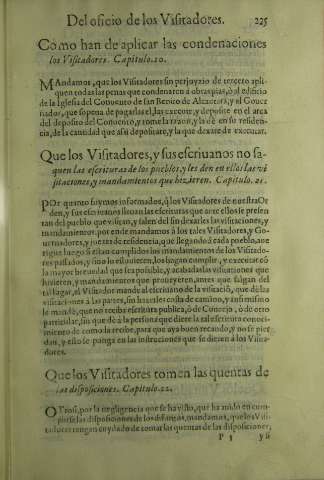 Del oficio de los Visitadores. 225
Cómo han de aplicar las condenaciones
los Visitadores. Capitulo.20.
MAndamos, que los Visitadores sin perjuyzio de tercero apliquen
todas las penas que condenaren a obras pias, ò al edificio
de la Iglesia del Conuento de san Benito de Alcantara, y el Gouer
nador, que so pena de pagarlas el, las execute, y deposite en el arca
del deposito del Conuento, y tome la razon, y la dè en su residen
cia, de la cantidad que assi depositare, y la que dexare de executar.
Que los Visitadores, y sus escriuanos no sa-
quen las escrituras de los pueblos, y les den en ellos las vi
sitaciones, y mandamientos que hizieren. Capitulo. 21.
POr quanto fuymos informados, q̃ los Visitadores de nuestra Or
den, y sus escriuanos lleuan las escrituras que ante ellos se presen
tan del pueblo que visitan, y salen del sin darles las visitaciones, y
mandamientos: por ende mandamos à los tales Visitadores, y Go-
uernadores, y juezes de residencia, que llegando à cada pueblo, aue
riguẽ luego si estan cumplidos los mandamientos de los Visitado-
res passados, y si no lo estuuieren, los hagan cumplir, y executar cõ
la mayor breuedad que sea posible, y acabadas las visitaciones que
hizieren, y mandamientos que proueyeren, antes que salgan del
tal lugar, el Visitador mande al escriuano de la visitaciõ, que de las
visitaciones à las partes, sin hazerles costa de camino, y ansi mismo
le mande, que no reciba escritura publica, ò de Concejo, ò de otro
particular, sin que dè à la persona que diere la tal escritura conoci
miento de como la recibe, para que aya buen recaudo, y no se pier
dan, y esto se ponga en las instrucciones que se dieren à los Visita-
dores.
Que los Visitadores tomen las quentas de
las disposiciones. Capitulo. 22.
OTrosi, por la negligencia que se ha visto, que ha auido en cum-
plirse las disposiciones de los difuntos, mandamos, que los Visi-
tadores tengan cuydado de tomar las quentas de las disposiciones,
y si